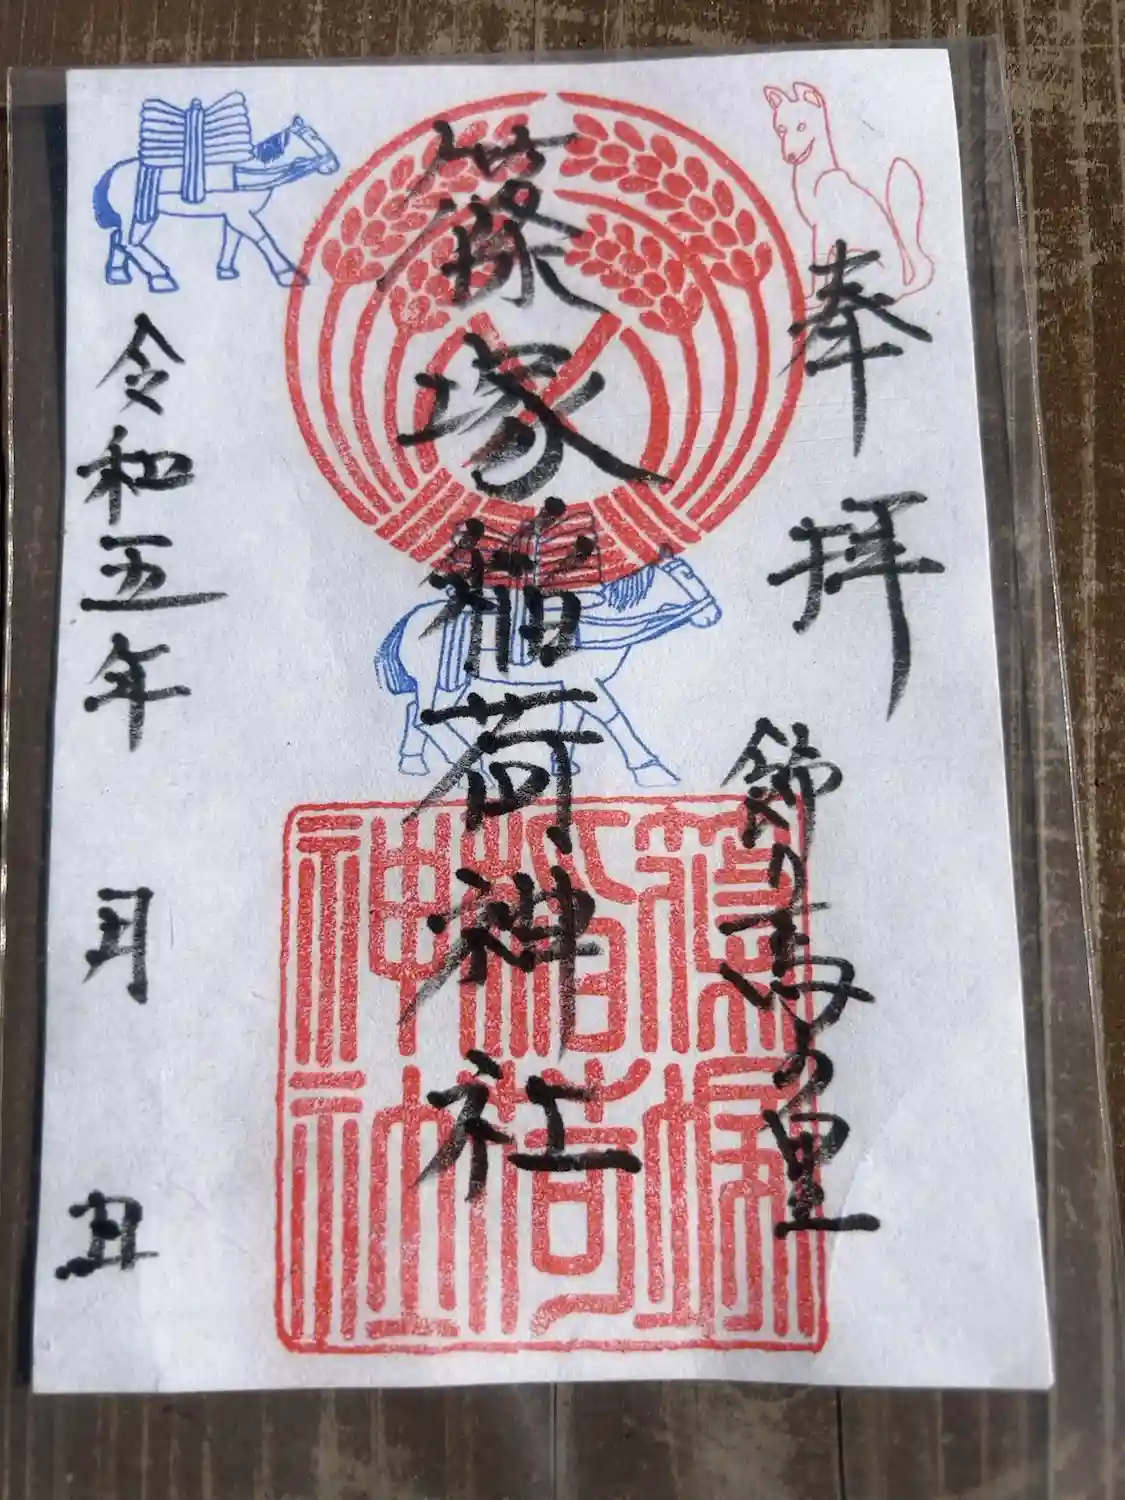 奉拝
飾り馬の里
篠塚稲荷神社
令和五年 月 日
篠塚
稲荷
神社